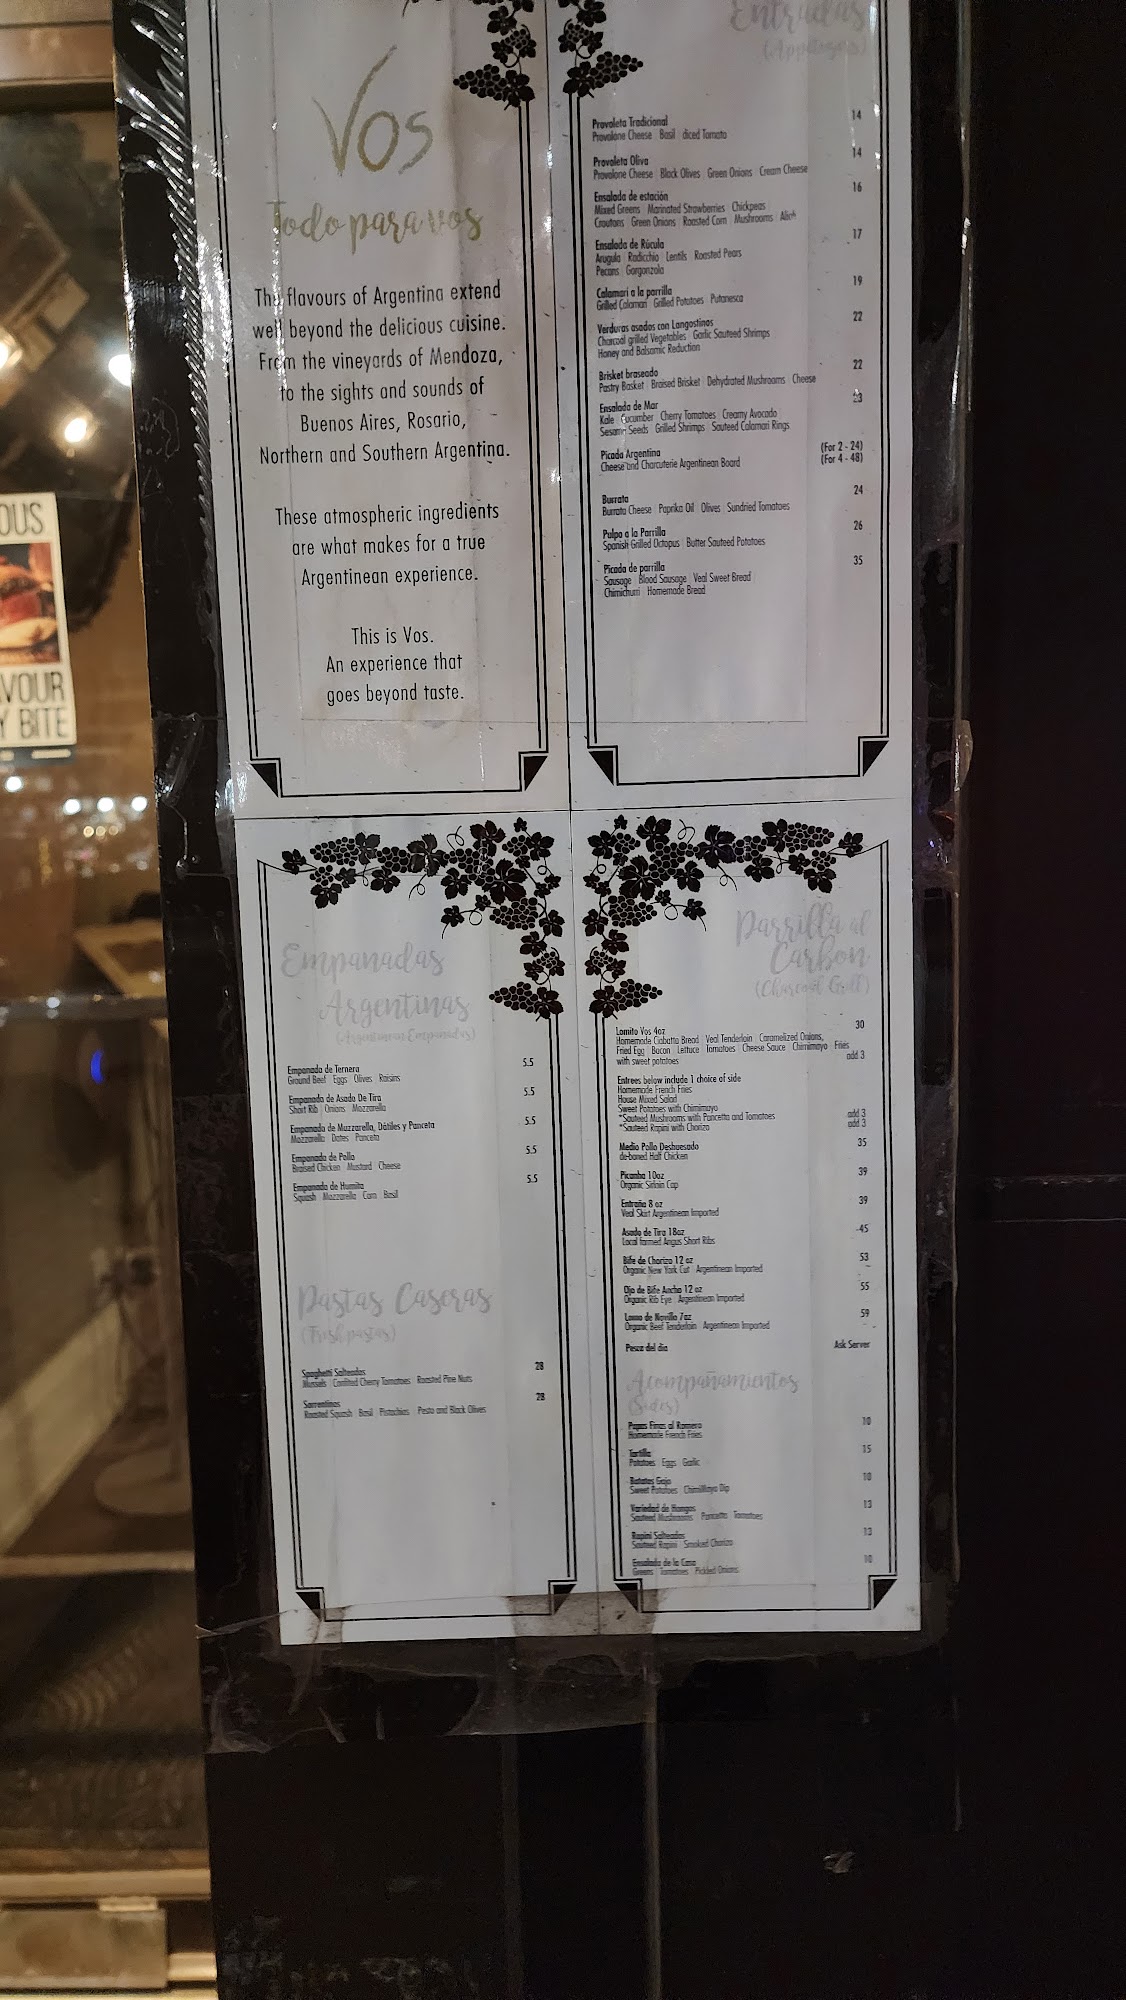 Vos
Todo para vos
The flavours of Argentina extend
well beyond the delicious cuisine.
From the vineyards of Mendoza,
to the sights and sounds of
Buenos Aires, Rosario,
Northern and Southern Argentina.
These atmospheric ingredients
are what makes for a true
Argentinean experience.
This is Vos.
An experience that
goes beyond taste.
Entradas
(Appetizers)
Provoleta Tradicional 14
Provolone Cheese Basil diced Tomato
Provoleta Oliva 14
Provolone Cheese Black Olives Green Onions Cream Cheese
Ensalada de estación 16
Mixed Greens Marinated Strawberries Chickpeas
Croutons Green Onions Roasted Corn Mushrooms
Ensalada de Rúcula 17
Arugula Radicchio Lentils Roasted Pears
Pecans Gorgonzola
Calamari a la parrilla 19
Grilled Calamari Grilled Potatoes Putanesca
Verduras asadas con Langostinos 22
Charcoal grilled Vegetables Garlic Sauteed Shrimps
Honey and Balsamic Reduction
Brisket braseado 22
Pastry Basket Braised Brisket Dehydrated Mushrooms Cheese
Ensalada de Mar 23
Kale Cucumber Cherry Tomatoes Creamy Avocado
Sesame Seeds Grilled Shrimps Sauteed Calamari Rings
Picada Argentina (For 2 - 24)
Cheese and Charcuterie Argentinean Board (For 4 - 48)
Burrata 24
Burrata Cheese Paprika Oil Olives Sundried Tomatoes
Pulpo a la Parrilla 26
Spanish Grilled Octopus Butter Sauteed Potatoes
Picada de parrilla 35
Sausage Blood Sausage Veal Sweet Bread
Chimichurri Homemade Bread
OUS
VOUR
Y BITE
Empanadas
Argentinas
(Argentinean Empanadas)
Empanada de Ternera 5.5
Ground Beef Eggs Olives Raisins
Empanada de Asado De Tira 5.5
Short Rib Onions Mozzarella
Empanada de Muzzarella, Dátiles y Panceta 5.5
Mozzarella Dates Panceta
Empanada de Pollo 5.5
Braised Chicken Mustard Cheese
Empanada de Humita 5.5
Squash Mozzarella Corn Basil
Pastas Caseras
(Fresh pastas)
Spaghetti Salteados 28
Mussels Confited Cherry Tomatoes Roasted Pine Nuts
Sorrentinos 28
Roasted Squash Basil Pistachios Pesto and Black Olives
Parrilla al
Carbon
(Charcoal Grill)
Lomito Vos 4oz 30
Homemade Ciabatta Bread Veal Tenderloin Caramelized Onions,
Fried Egg Bacon Lettuce Tomatoes Cheese Sauce Chimimayo Fries
with sweet potatoes add 3
Entrees below include 1 choice of side
Homemade French Fries
House Mixed Salad
Sweet Potatoes with Chimimayo
*Sauteed Mushrooms with Pancetta and Tomatoes add 3
*Sauteed Rapini with Chorizo add 3
Medio Pollo Deshuesado 35
de-boned Half Chicken
Picanha 10oz 39
Organic Sirloin Cap
Entraña 8 oz 39
Veal Skirt Argentinean Imported
Asado de Tira 18oz 45
Local farmed Angus Short Ribs
Bife de Chorizo 12 oz 53
Organic New York Cut Argentinean Imported
Ojo de Bife Ancho 12 oz 55
Organic Rib Eye Argentinean Imported
Lomo de Novillo 7oz 59
Organic Beef Tenderloin Argentinean Imported
Pesca del dia Ask Server
Acompañamientos
(Sides)
Papas Finas al Romero 10
Homemade French Fries
Tortilla 15
Potatoes Eggs Garlic
Batatas Gajo 10
Sweet Potatoes ChimiMayo Dip
Variedad de Hongos 13
Sauteed Mushrooms Pancetta Tomatoes
Rapini Salteados 13
Sauteed Rapini Smoked Chorizo
Ensalada de la Casa 10
Greens Tomatoes Pickled Onions